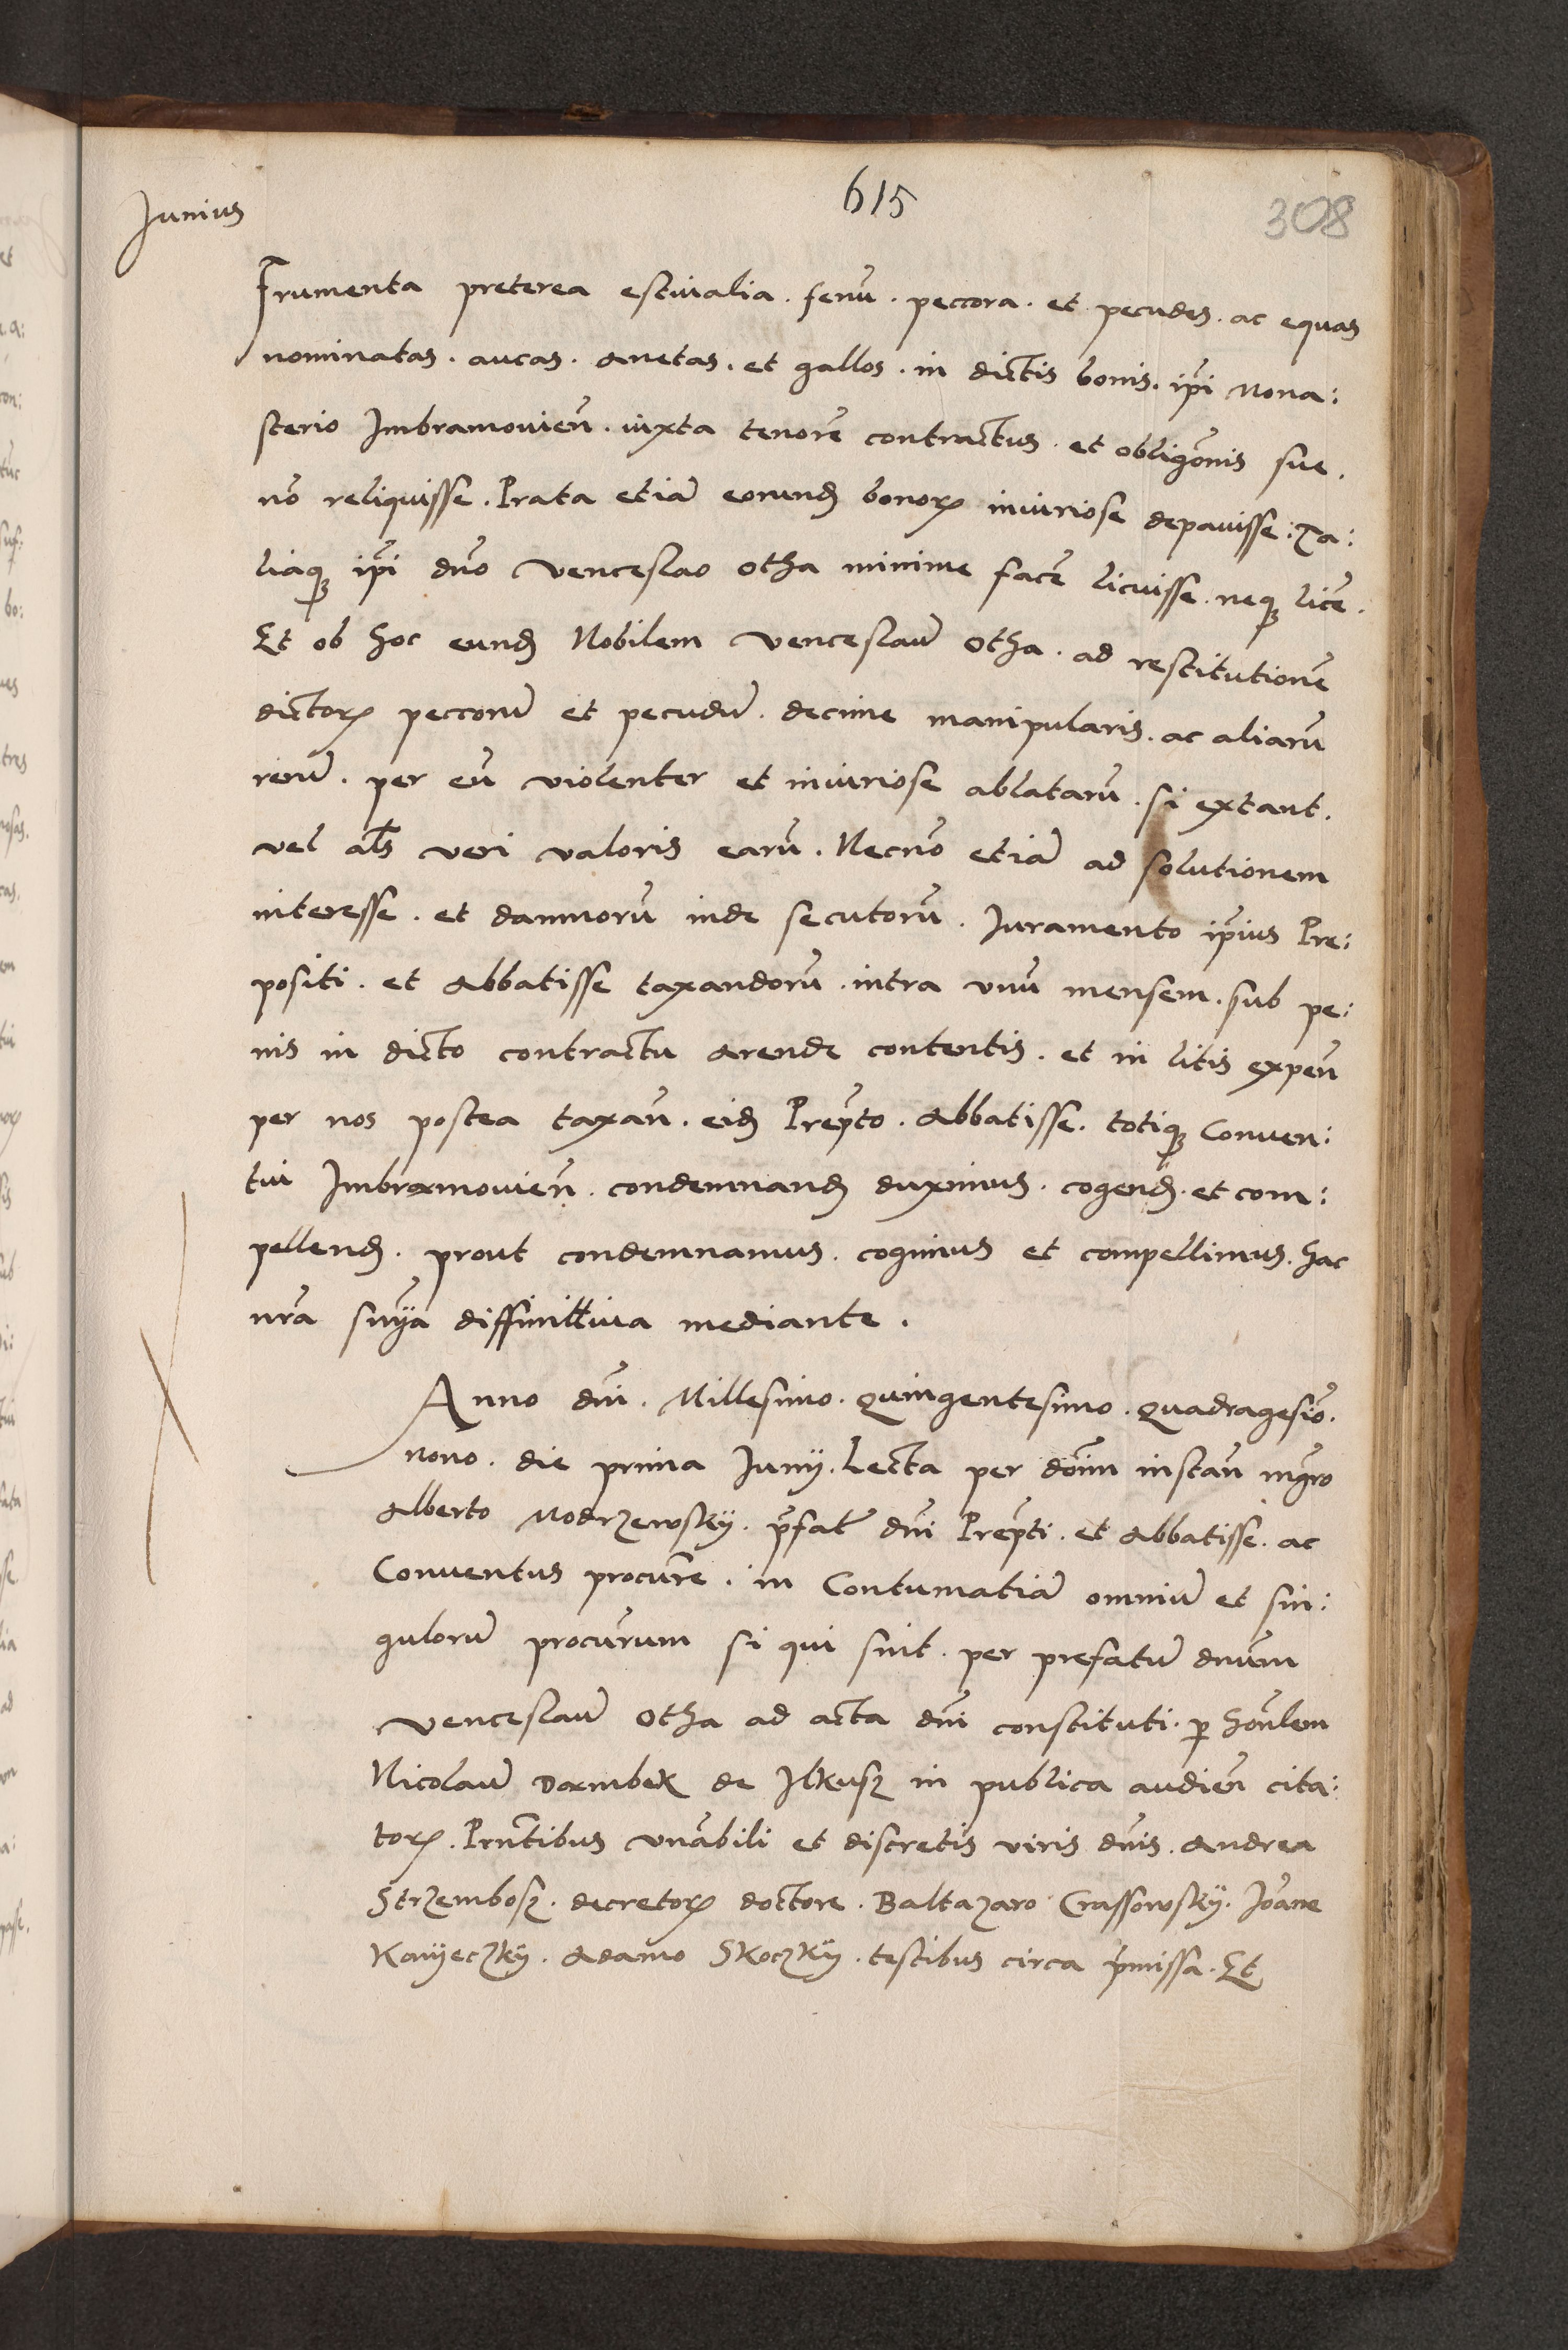 615
308
Junius
Frumenta preterea estivalia. fenū. peccora. et pecudes. ac equas
nominatas. aucas. anetas. et gallos. in dictis bonis. ip̄i Mona:
sterio Imbramovien̄. iuxta tenorē contractus. et obligōnis sue.
nō reliquisse. Prata etiā eorund̨ bonoꝝ iniuriose depavisse: Ta:
liaqꝫ ip̄i dn̄o Venceslao Otha minime facē licuisse. neqꝫ licē.
Et ob hoc eund̨ Nobilem Venceslaū Otha. ad restitutionē
dictoꝝ peccorū et pecudū. decime manipularis. ac aliarū
rerū. per eū violenter et iniuriose ablatarū. si extant.
vel al̄s veri valoris earū. Necnō etiā ad solutionem
interesse. et damnorū inde secutorū. Juramento ip̄ius Pre:
positi. et Abbatisse taxandorū. intra unū mensem. sub pe:
nis in dicto contractu arende contentis. et in litis expen̄
per nos postea taxan̄. eid̨ Prep̄to. Abbatisse. totiqꝫ Conven:
tui Imbramovien̄. condemnand̨ duximus. cogend̨. et com:
pellend̨. prout condemnamus. cogimus et compellimus. hac
nr̄a sn̄ya diffinittiva mediante.
Anno dn̄i. Millesimo. Quingentesimo. Quadragesīo.
Nono. die prima Junij. Lecta per dōim instan̄ mḡro
Alberto Modrzewsky. p̄fat̄ dn̄i Prep̄ti. et Abbatisse. ac
Conventus procūre. in Contumatiā omniū et sin:
gulorū procūrum si qui sint. per prefatū dnūm
Venceslaū Otha ad acta dn̄i constituti. ꝑ hōnlem
Nicolaū Dambek de Ilkusz in publica audien̄ cita:
toꝝ. Prn̄tibus vn̄abili et discretis viris dn̄is. Andrea
Strzembosz. decretoꝝ doctore. Baltazaro Crassowsky. Joāne
Kanyeczky. Adamo Skoczky. testibus circa p̄missa. Et